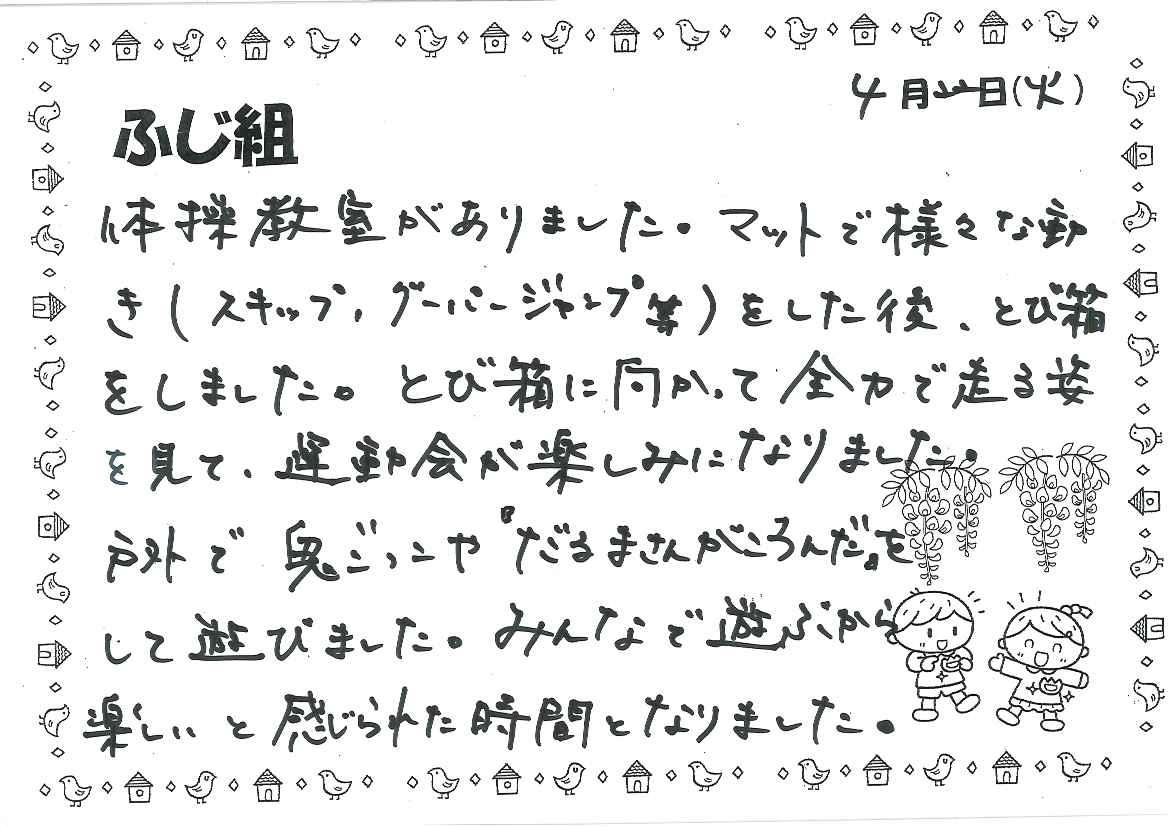 4月22日(火)
ふじ組
体操教室がありました。マットで様々な動
き(スキップ、グーパージャンプ等)をした後、とび箱
をしました。とび箱に向かって全力で走る姿
を見て、運動会が楽しみになりました。
戸外で鬼ごっこや『だるまさんがころんだ』を
して遊びました。みんなで遊ぶから
楽しいと感じられた時間となりました。